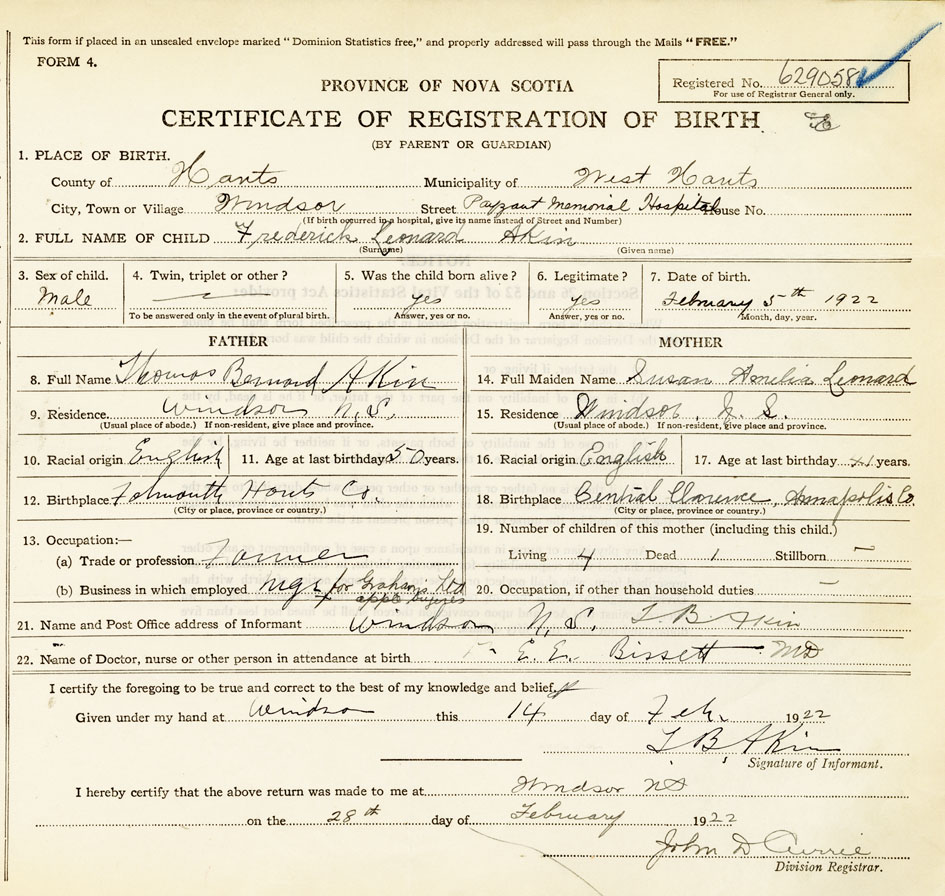 This form if placed in an unsealed envelope marked "Dominion Statistics free," and properly addressed will pass through the Mails "FREE."
FORM 4.
Registered No. 629058
For use of Registrar General only.
PROVINCE OF NOVA SCOTIA
CERTIFICATE OF REGISTRATION OF BIRTH
(BY PARENT OR GUARDIAN)
1. PLACE OF BIRTH.
County of Hants Municipality of West Hants
City, Town or Village Windsor Street Payzant Memorial Hospital House No.
(If birth occurred in a hospital, give its name instead of Street and Number)
2. FULL NAME OF CHILD Frederick Leonard Akin
(Surname) (Given name)
3. Sex of child. 4. Twin, triplet or other? 5. Was the child born alive? 6. Legitimate? 7. Date of birth.
Male — yes yes February 5th 1922
To be answered only in the event of plural birth. Answer, yes or no. Answer, yes or no. Month, day, year.
FATHER MOTHER
8. Full Name Thomas Bernard Akin 14. Full Maiden Name Susan Amelia Leonard
9. Residence Windsor N.S. 15. Residence Windsor, N.S.
(Usual place of abode.) If non-resident, give place and province. (Usual place of abode.) If non-resident, give place and province.
10. Racial origin English 11. Age at last birthday 50 years. 16. Racial origin English 17. Age at last birthday 41 years.
12. Birthplace Falmouth Hants Co. 18. Birthplace Central Clarence, Annapolis Co.
(City or place, province or country.) (City or place, province or country.)
19. Number of children of this mother (including this child.)
13. Occupation:—
(a) Trade or profession Farmer Living 4 Dead 1 Stillborn —
(b) Business in which employed Mgr for Grahams Ltd 20. Occupation, if other than household duties —
apple buyers
21. Name and Post Office address of Informant Windsor N.S. T B Akin
22. Name of Doctor, nurse or other person in attendance at birth E. E. Bissett MD
I certify the foregoing to be true and correct to the best of my knowledge and belief.
Given under my hand at Windsor this 14 day of Feb. 1922
T B Akin
Signature of Informant.
I hereby certify that the above return was made to me at Windsor NS
on the 28th day of February 1922
John D Currie
Division Registrar.